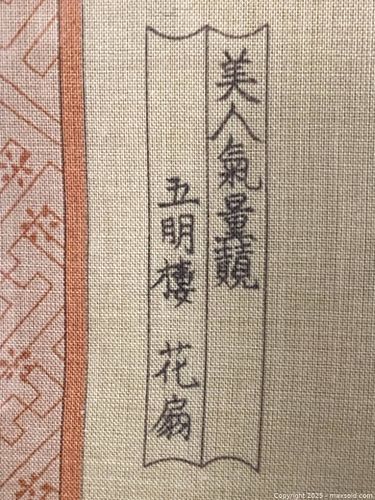 美人氣量競
五明樓 花扇
Copyright 2025 - maxsold.com